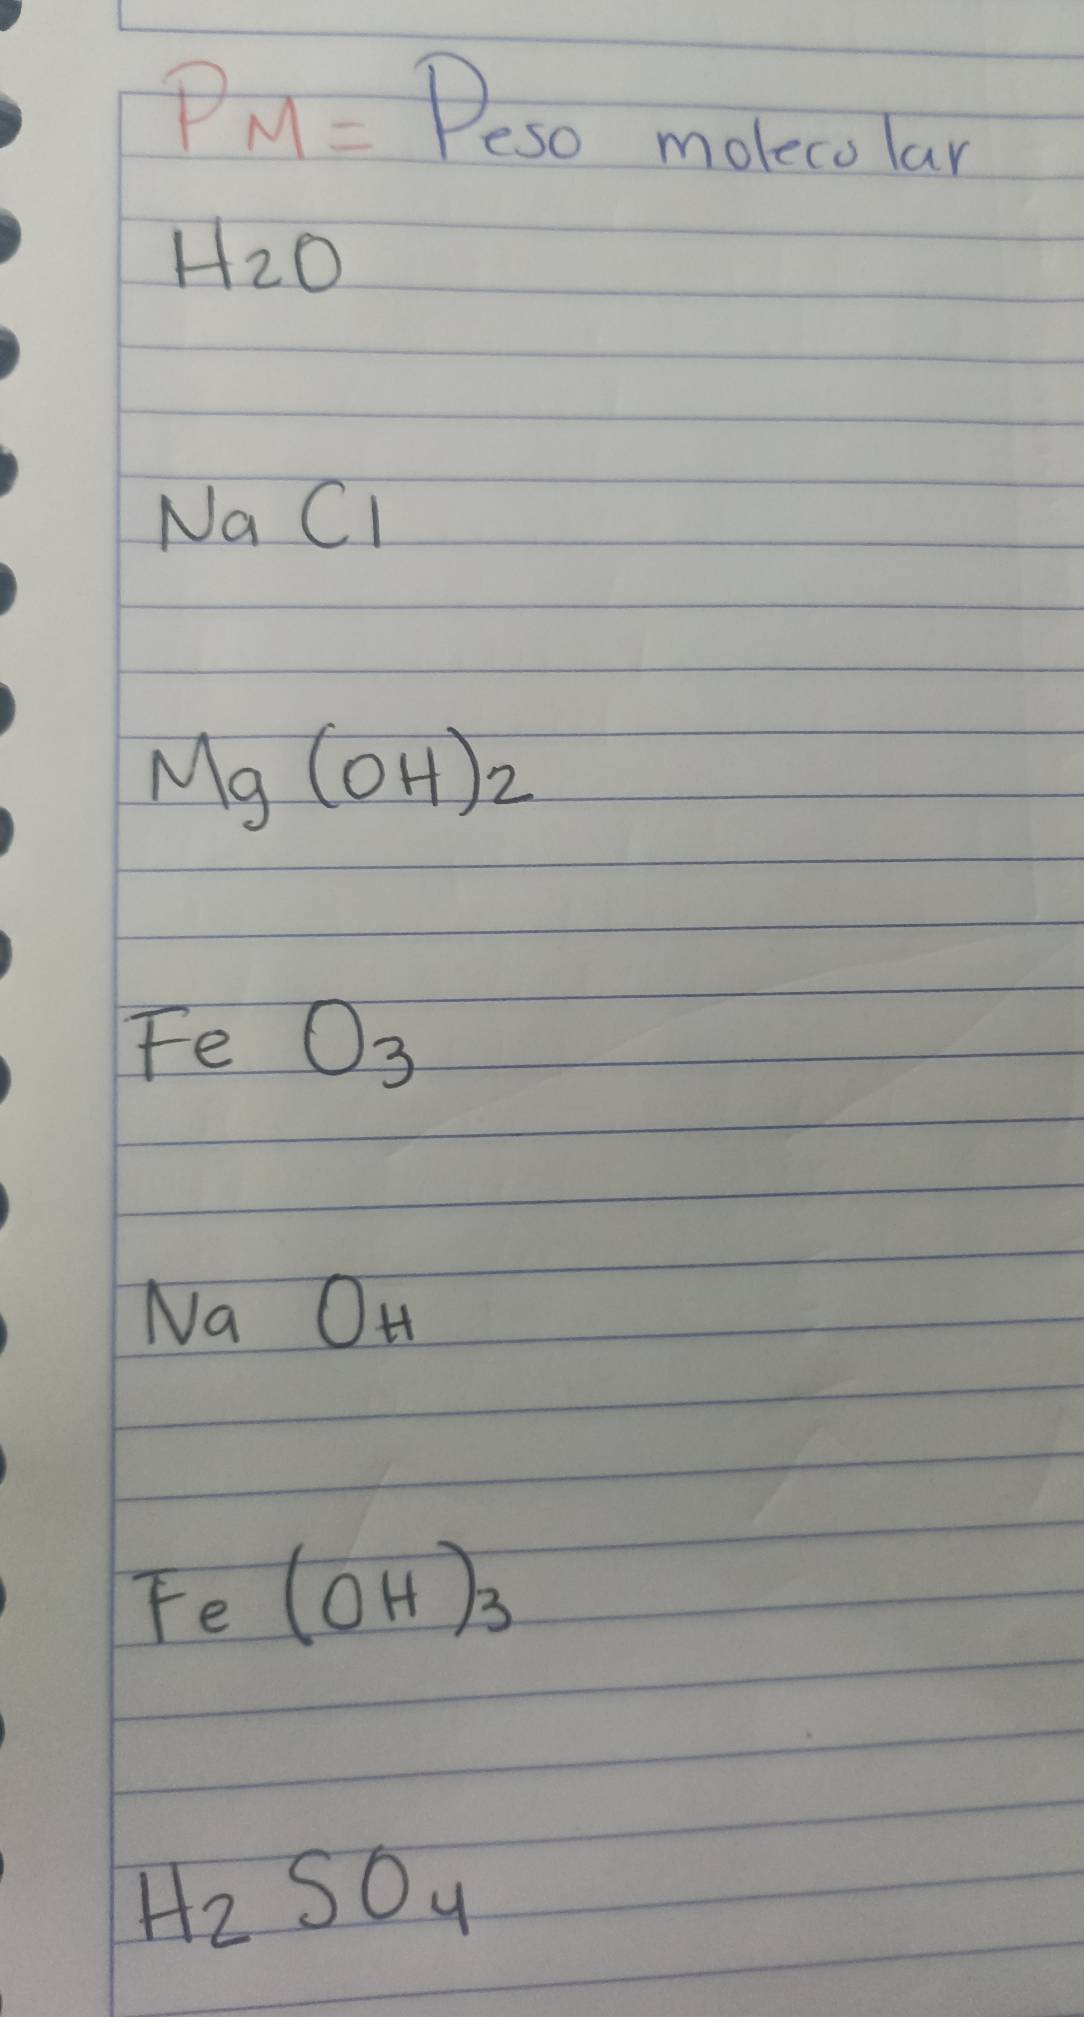 PM= Peso molecular
H2O
Na Cl
Mg (OH)2
Fe O3
Na OH
Fe (OH)3
H2 SO4